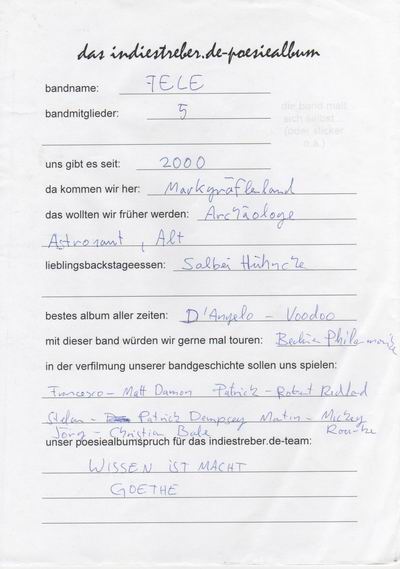 das indiestreber.de-poesiealbum
bandname: TELE
bandmitglieder: 5
die band malt
sich selbst
(oder sticker
o.ä.)
uns gibt es seit: 2000
da kommen wir her: Markgräflerland
das wollten wir früher werden: Archäologe
Astronaut, Alt
lieblingsbackstageessen: Salbei Hühnche
bestes album aller zeiten: D'Angelo - Voodoo
mit dieser band würden wir gerne mal touren: Berliner Philharmonik
in der verfilmung unserer bandgeschichte sollen uns spielen:
Francesco - Matt Damon Patrick - Robert Redford
Stefan - Patrick Dempsey Martin - Mickey
Jörg - Christian Bale Rourke
unser poesiealbumspruch für das indiestreber.de-team:
WISSEN IST MACHT
GOETHE